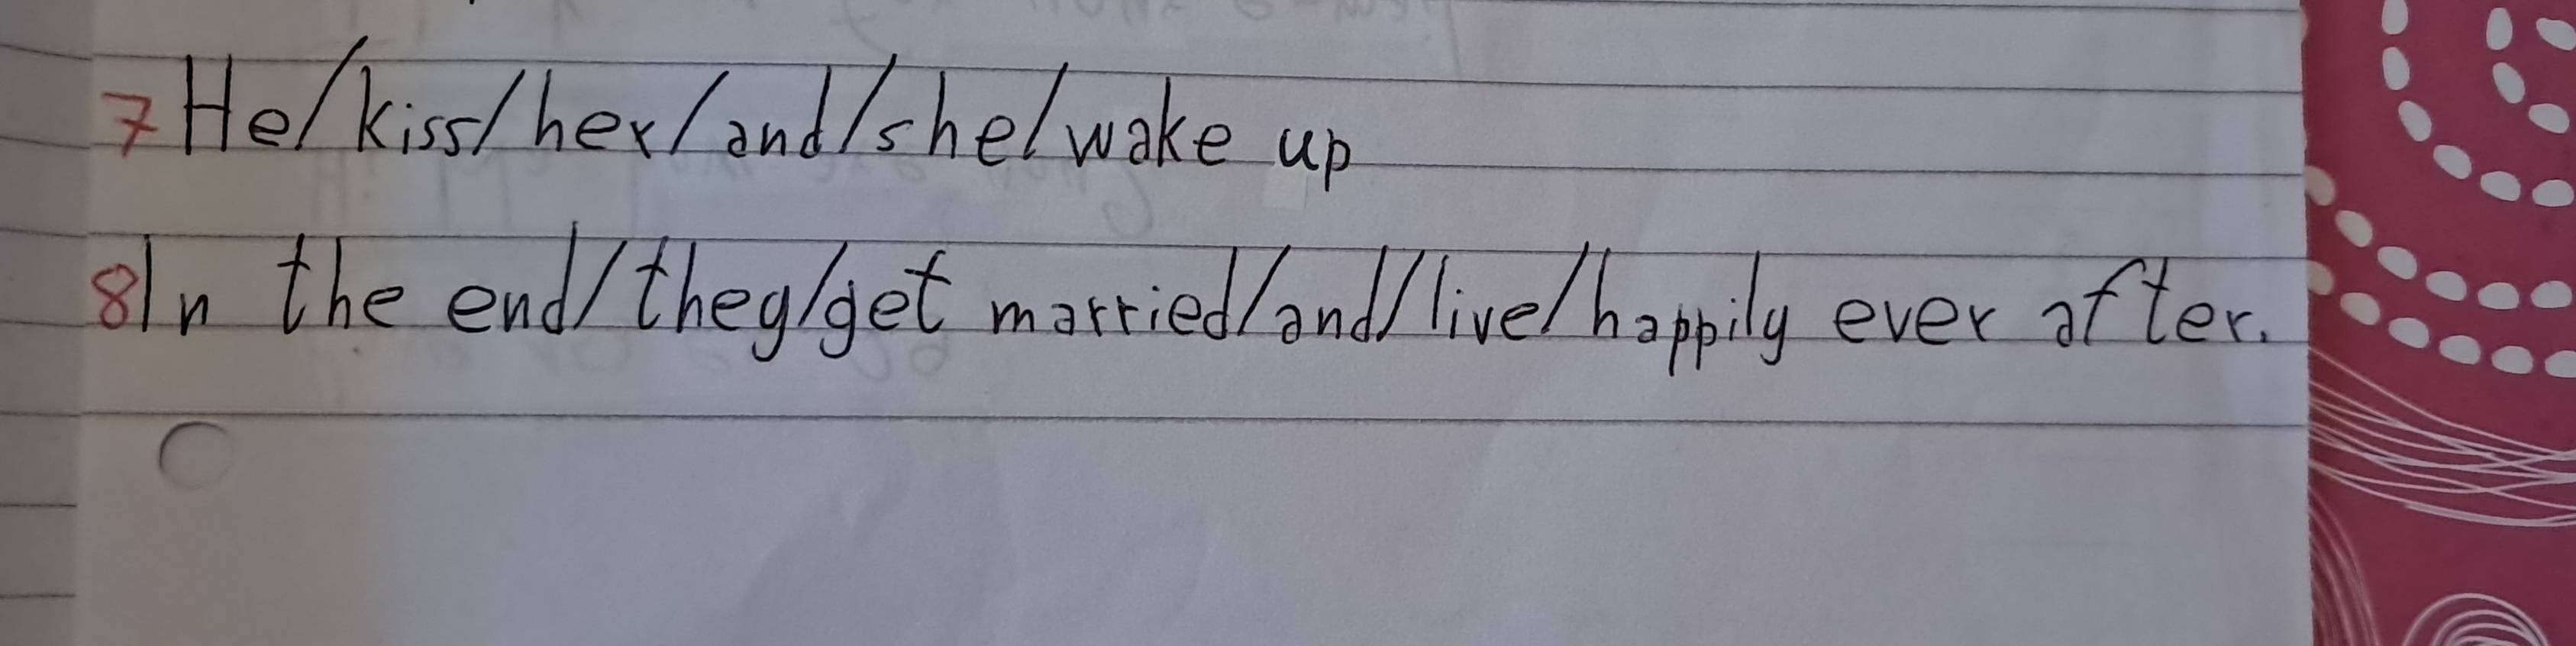 7 He/kiss/her/and/she/wake up
8 In the end/they/get married/and/live/happily ever after.